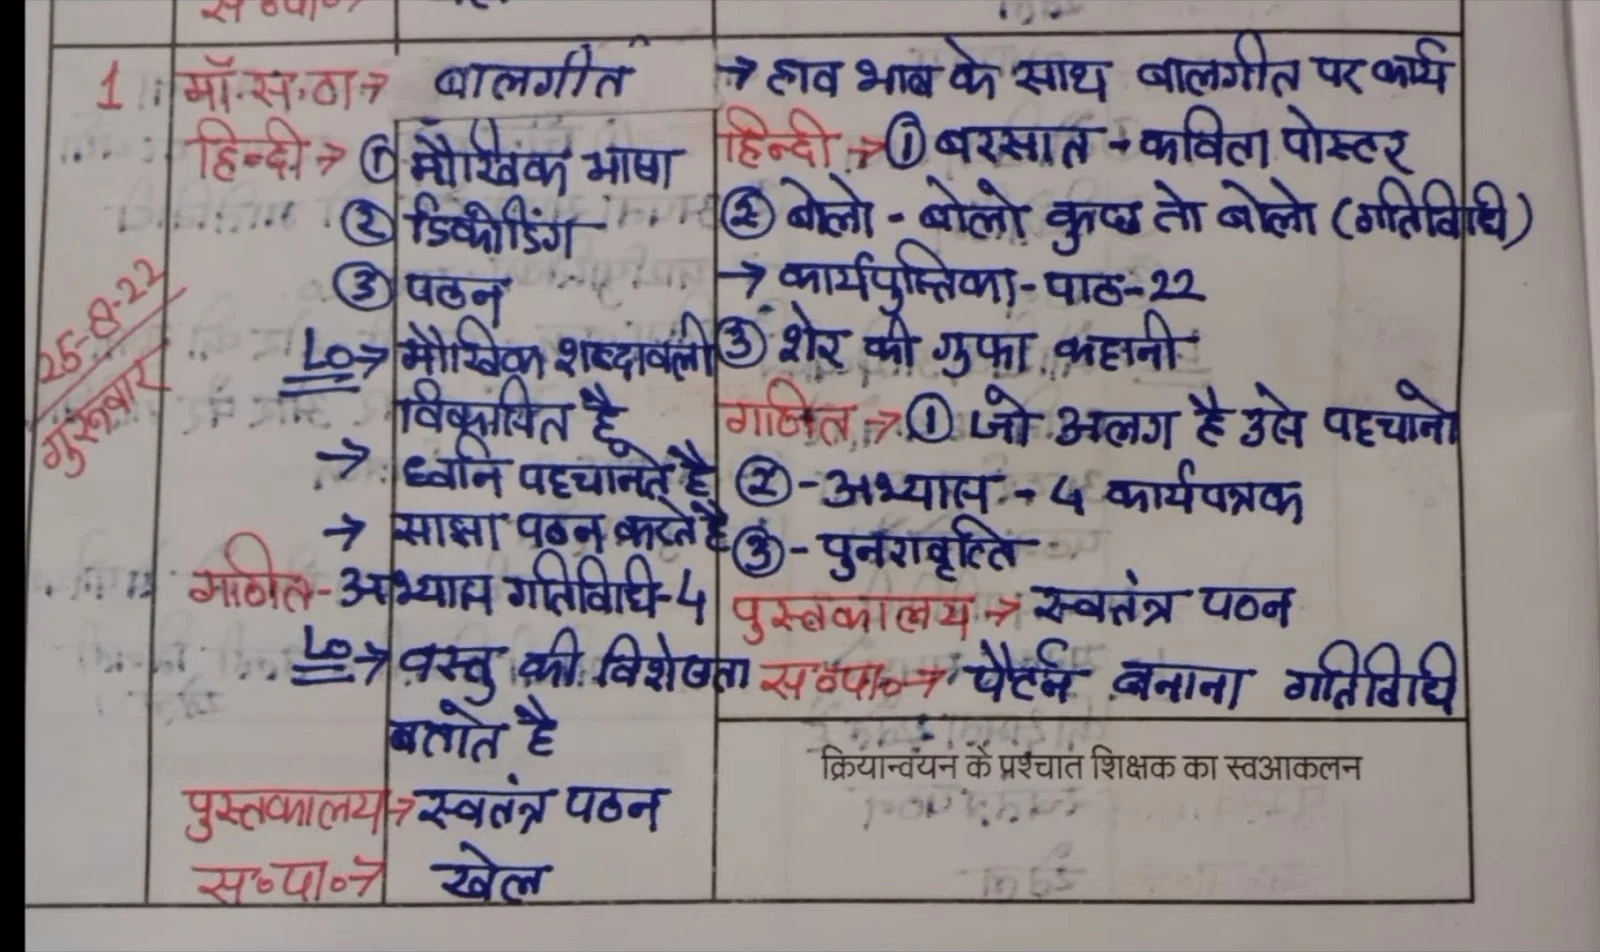 स०पा०→
25-8-22
गुरूवार
1
मॉ.स.ठा→ बालगीत
हिन्दी→ ① मौखिक भाषा
② डिकोडिंग
③ पठन
LO→ मौखिक शब्दावली
विकसित है
→ ध्वनि पहचानते है
→ साझा पठन करते है
गणित- अभ्यास गतिविधि-4
LO→ वस्तु की विशेषता
बताते है
पुस्तकालय→ स्वतंत्र पठन
स०पा०→ खेल
→ हाव भाव के साथ बालगीत पर कार्य
हिन्दी→ ① बरसात - कविता पोस्टर
② बोलो - बोलो कुछ तो बोलो (गतिविधि)
→ कार्यपुस्तिका - पाठ-22
③ शेर की गुफा कहानी
गणित→ ① जो अलग है उसे पहचानो
② - अभ्यास - 4 कार्यपत्रक
③ - पुनरावृत्ति
पुस्तकालय→ स्वतंत्र पठन
स०पा०→ पैटर्न बनाना गतिविधि
क्रियान्वयन के प्रश्चात शिक्षक का स्वआकलन